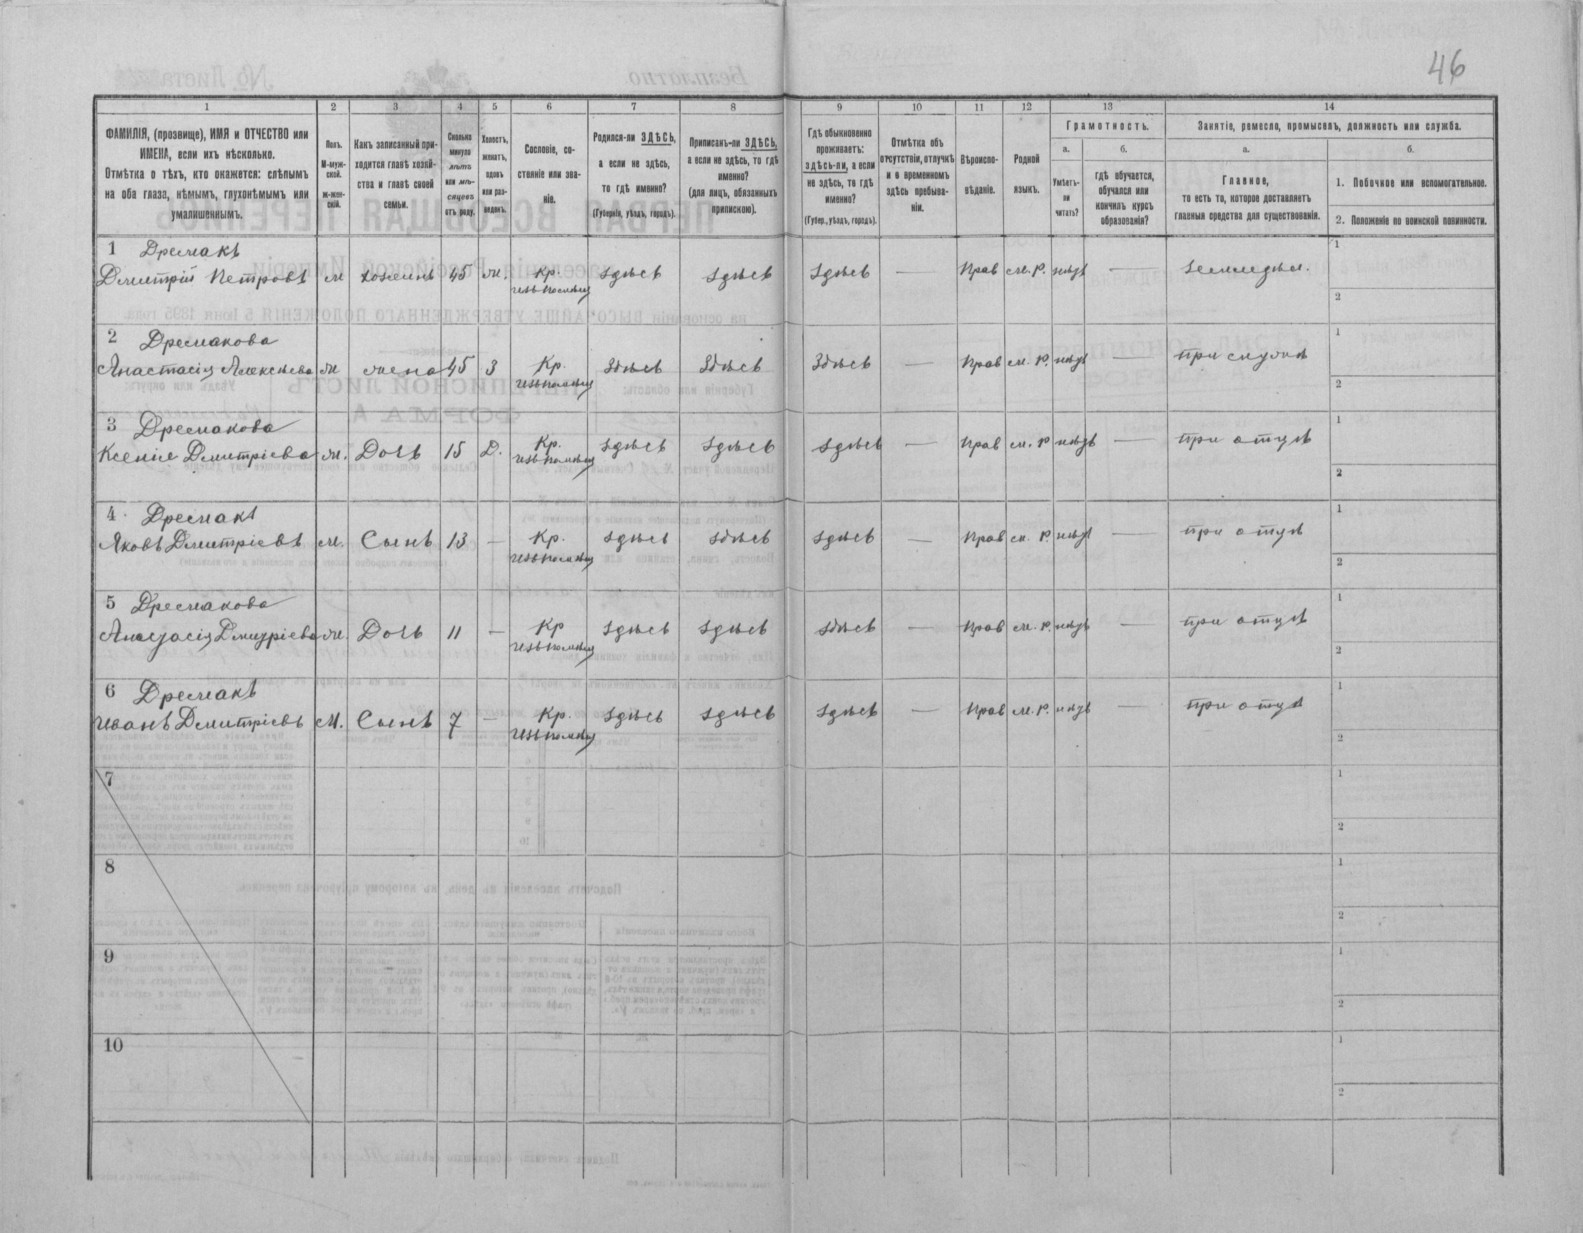 46
1
2
3
4
5
6
7
8
9
10
11
12
13
14
ФАМИЛІЯ, (прозвище), ИМЯ и ОТЧЕСТВО или
ИМЕНА, если ихъ нѣсколько.
Отмѣтка о тѣхъ, кто окажется: слѣпымъ
на оба глаза, нѣмымъ, глухонѣмымъ или
умалишеннымъ.
Полъ.
М-муж-
ской.
Ж-жен-
скій.
Какъ записанный при-
ходится главѣ хозяй-
ства и главѣ своей
семьи.
Сколько
минуло
лѣтъ
или мѣ-
сяцевъ
отъ роду.
Холостъ,
женатъ,
вдовъ
или раз-
веденъ.
Сословіе, со-
стояніе или зва-
ніе.
Родился-ли ЗДѢСЬ,
а если не здѣсь,
то гдѣ именно?
(Губернія, уѣздъ, городъ).
Приписанъ-ли ЗДѢСЬ,
а если не здѣсь, то гдѣ
именно?
(для лицъ, обязанныхъ
припискою).
Гдѣ обыкновенно
проживаетъ:
здѣсь-ли, а если
не здѣсь, то гдѣ
именно?
(Губер., уѣздъ, городъ).
Отмѣтка объ
отсутствіи, отлучкѣ
и о временномъ
здѣсь пребыва-
ніи.
Вѣроиспо-
вѣданіе.
Родной
языкъ.
Грамотность.
а.
Умѣетъ-
ли
читать?
б.
гдѣ обучается,
обучался или
кончилъ курсъ
образованія?
Занятіе, ремесло, промыселъ, должность или служба.
а.
Главное,
то есть то, которое доставляетъ
главныя средства для существованія.
б.
1. Побочное или вспомогательное.
2. Положеніе по воинской повинности.
1 Дремакъ
Дмитрій Петровъ м хозяинъ 45 ж. Кр. здѣсь здѣсь здѣсь — Прав м. р. нѣтъ — земледѣл. 1
изъ помѣщ 2
2 Дремакова
Анастасія Алексѣева ж жена 45 З Кр. Здѣсь Здѣсь Здѣсь — Прав м. р. нѣтъ — при мужѣ 1
изъ помѣщ 2
3 Дремакова
Ксенія Дмитріева ж. Дочь 15 Д. Кр. здѣсь здѣсь здѣсь — Прав м. р нѣтъ — при отцѣ 1
изъ помѣщ 2
4 Дремакъ
Яковъ Дмитріевъ м. Сынъ 13 — Кр. здѣсь здѣсь здѣсь — Прав м. р нѣтъ — при отцѣ 1
изъ помѣщ 2
5 Дремакова
Анастасія Дмитріева ж. Дочь 11 — Кр здѣсь здѣсь здѣсь — Прав м. р. нѣтъ — при отцѣ 1
изъ помѣщ 2
6 Дремакъ
Иванъ Дмитріевъ М. Сынъ 7 — Кр. здѣсь здѣсь здѣсь — Прав м. р. нѣтъ — при отцѣ 1
изъ помѣщ 2
7 1
2
8 1
2
9 1
2
10 1
2